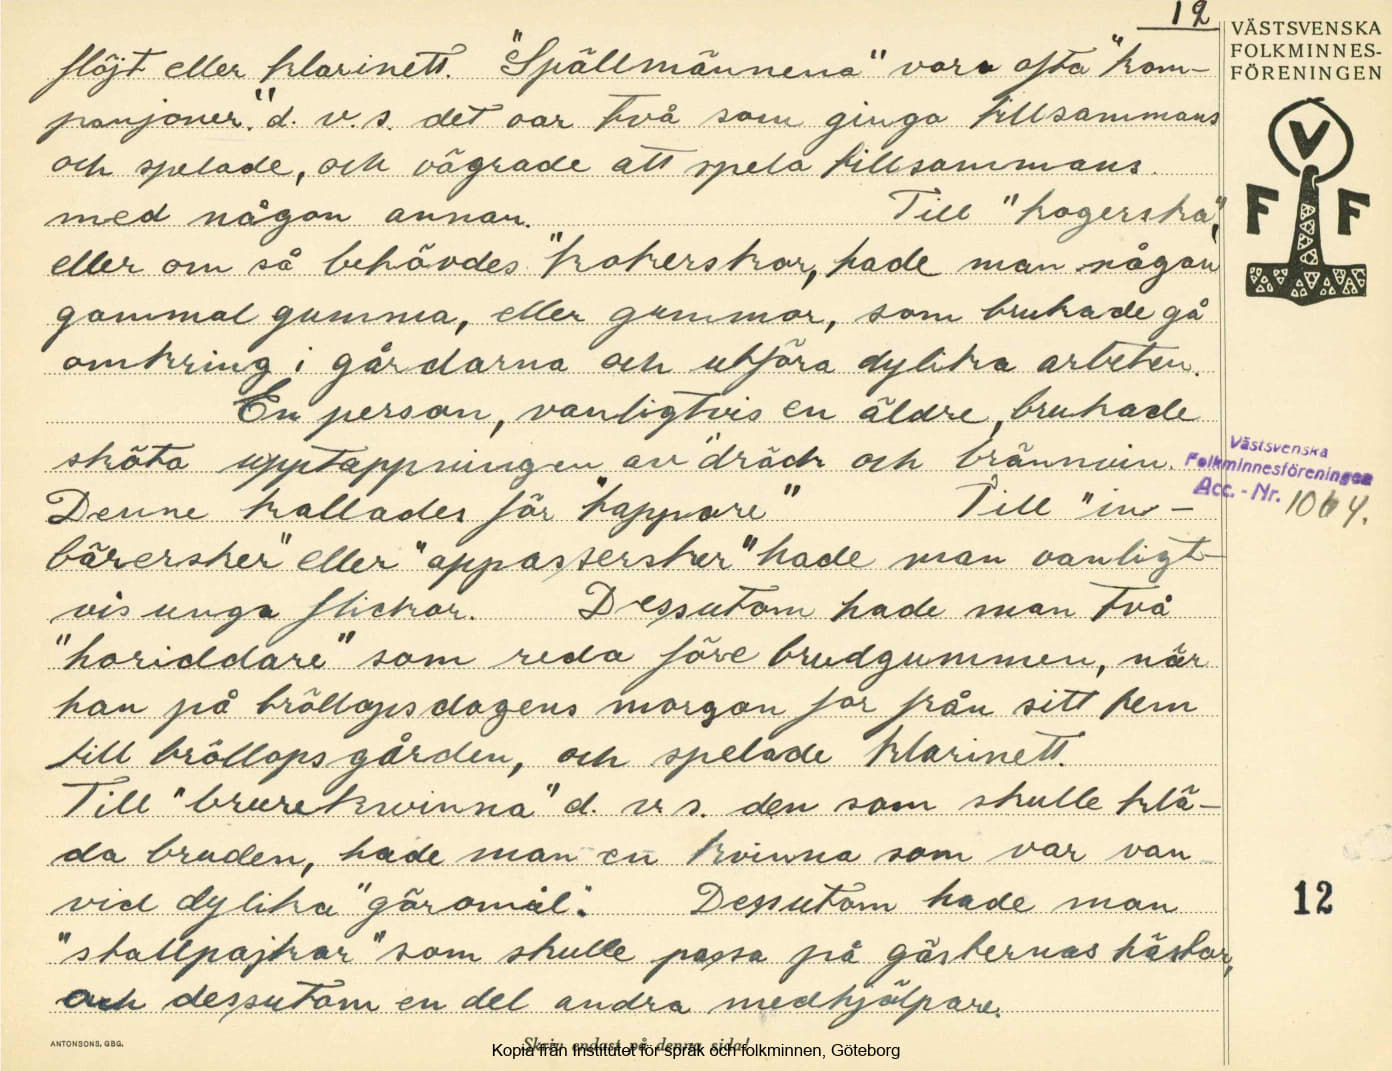 12
VÄSTSVENSKA
FOLKMINNES-
FÖRENINGEN
V
F F
flöjt eller klarinett. "Spällmännena" voro ofta "kom-
panjoner". d. v. s. det var två som gingo tillsammans
och spelade, och vägrade att spela tillsammans
med någon annan. Till "kogerska",
eller om så behövdes "kokerskor, hade man någon
gammal gumma, eller gummor, som brukade gå
omkring i gårdarna och utföra dylika arbeten.
En person, vanligtvis en äldre, brukade
sköta upptappningen av dräck och brännvin.
Denne kallades för "tappare" Till "in-
bärersker" eller "appassersker" hade man vanligt-
vis unga flickor. Dessutom hade man två
"foriddare" som reda före brudgummen, när
han på bröllopsdagens morgon for från sitt hem
till bröllopsgården, och spelade klarinett.
Till "brurekwinna" d. v. s. den som skulle klä-
da bruden, hade man en kvinna som var van
vid dylika "göromål". Dessutom hade man
"stallpajkar" som skulle passa på gästernas hästar,
och dessutom en del andra medhjälpare.
Västsvenska
Folkminnesföreningen
Acc. - Nr. 1064.
12
ANTONSONS, GBG.
Skriv endast på denna sida!
Kopia från Institutet för språk och folkminnen, Göteborg